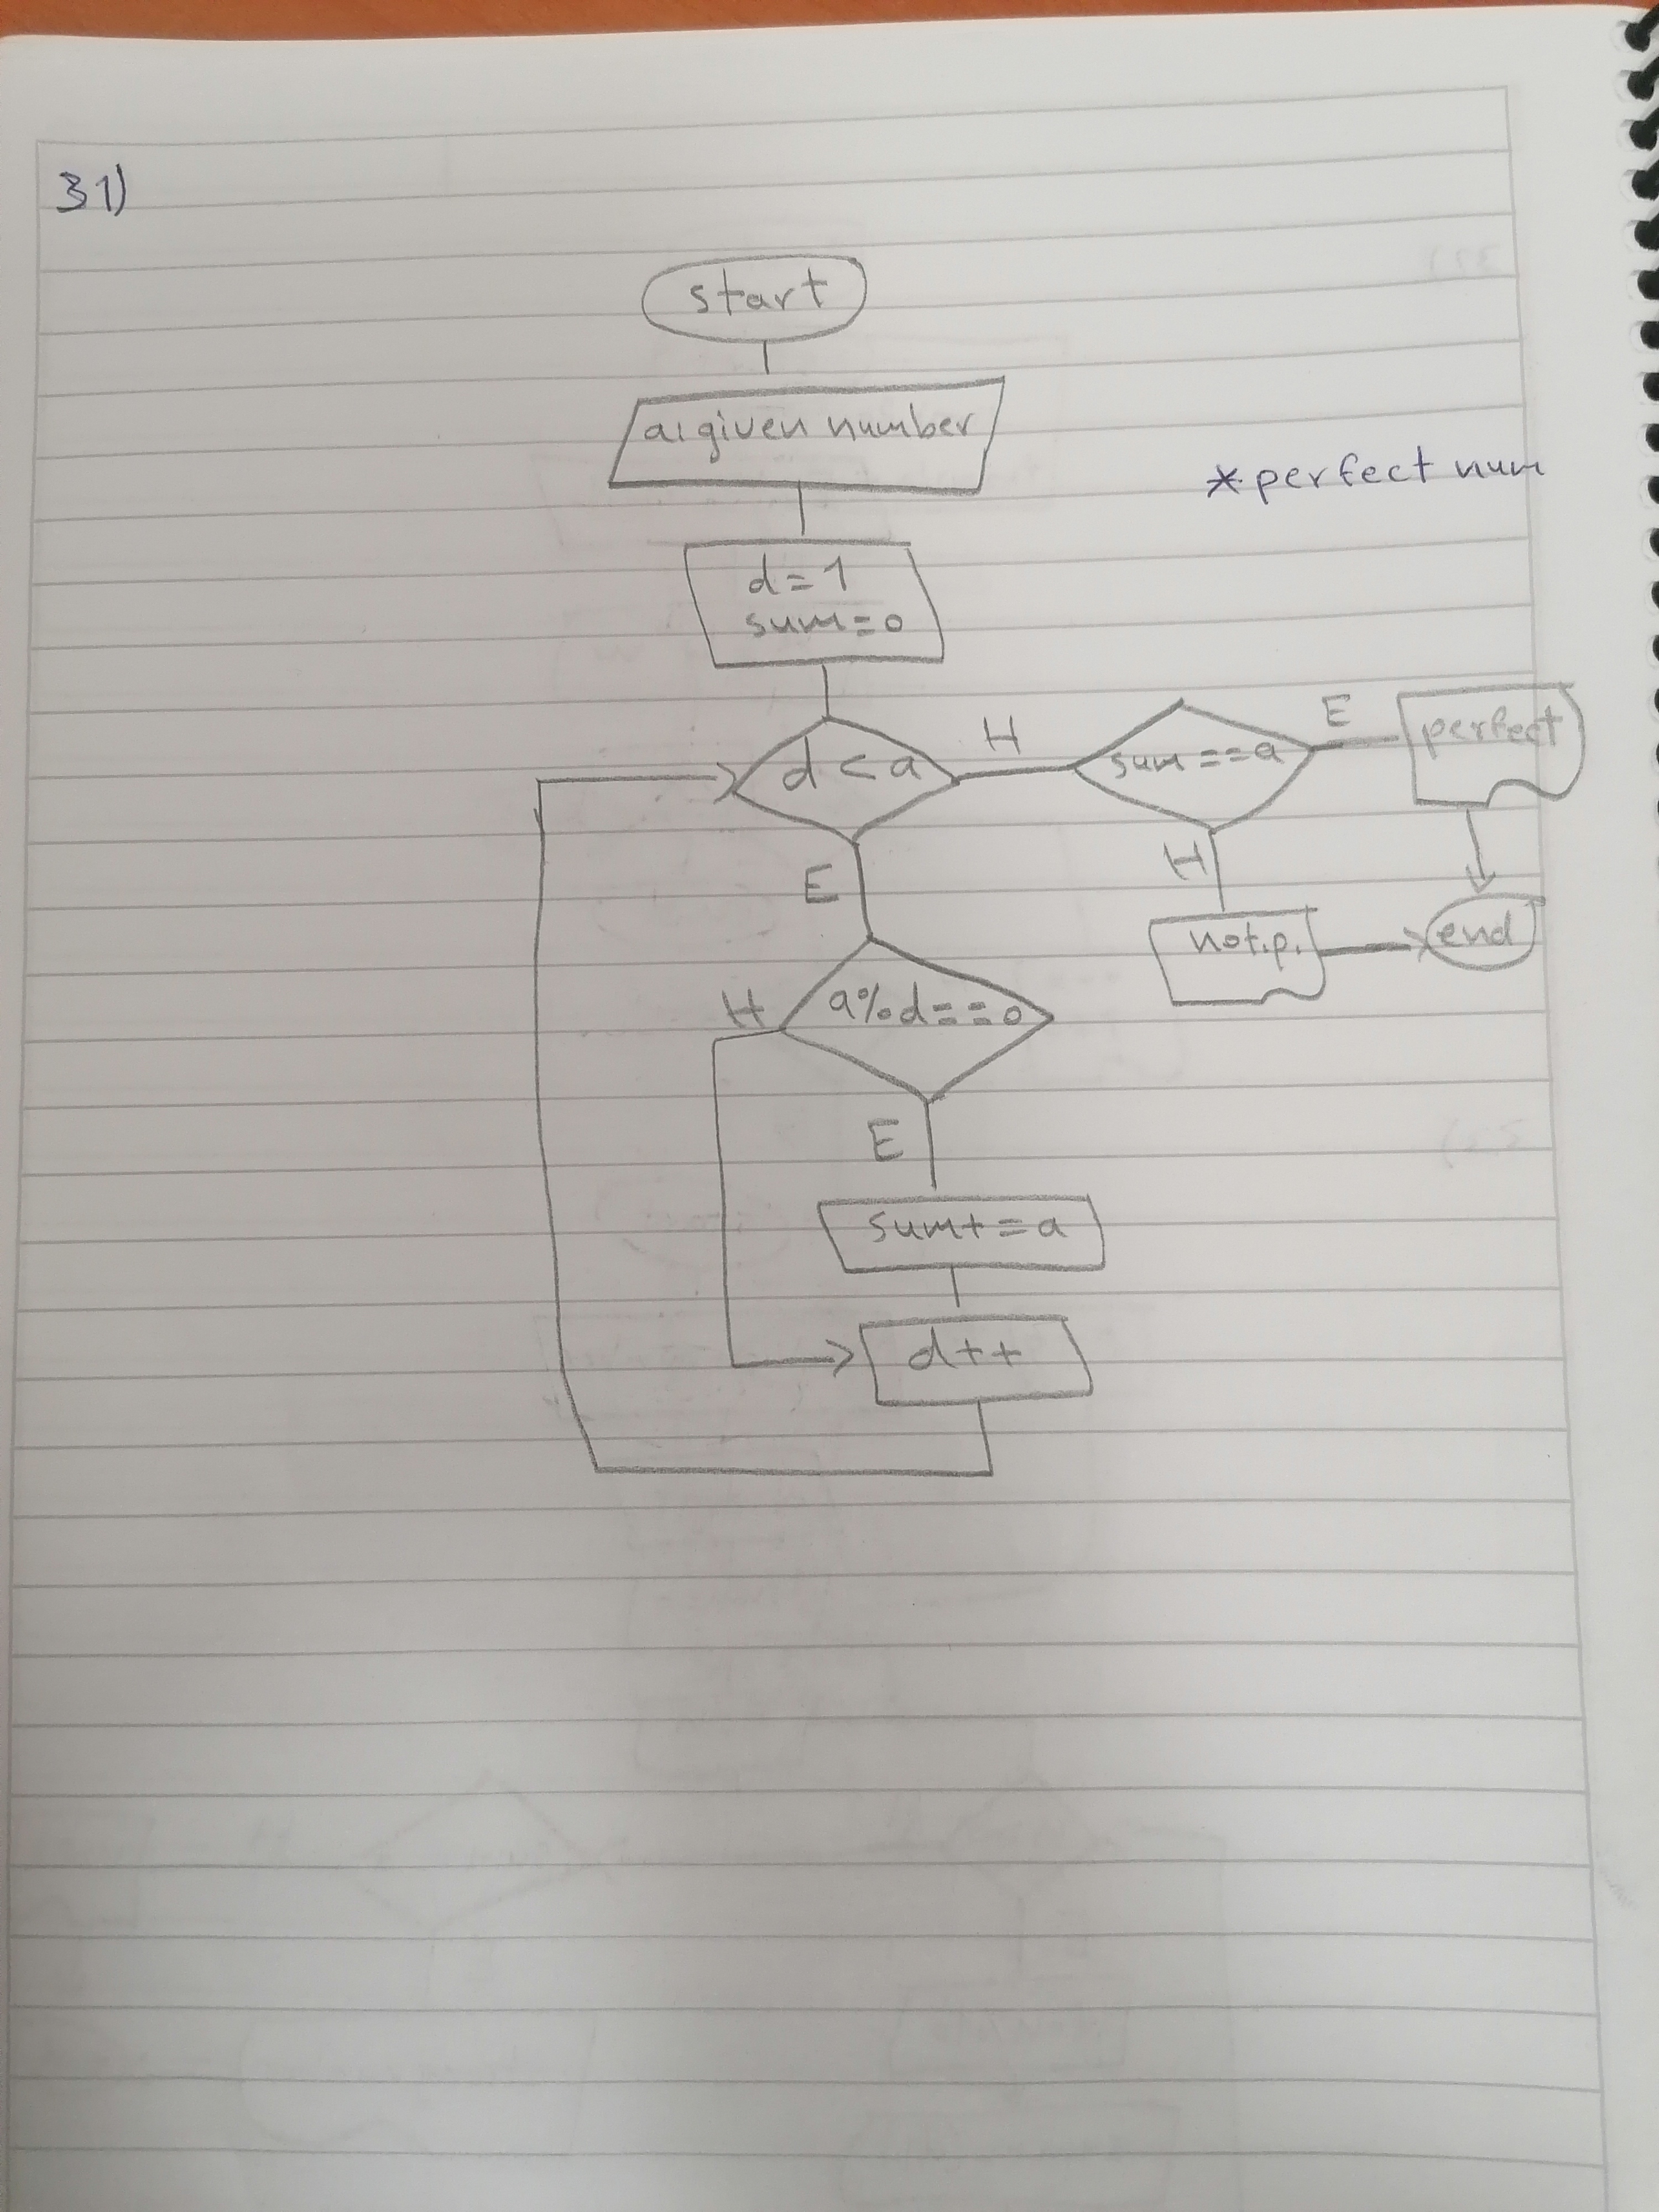 31)
start
a: given number
*perfect num
d=1
sum=0
d<a
H
sum==a
E
perfect
E
H
not.p.
end
H
a%d==0
E
sum+=a
d++